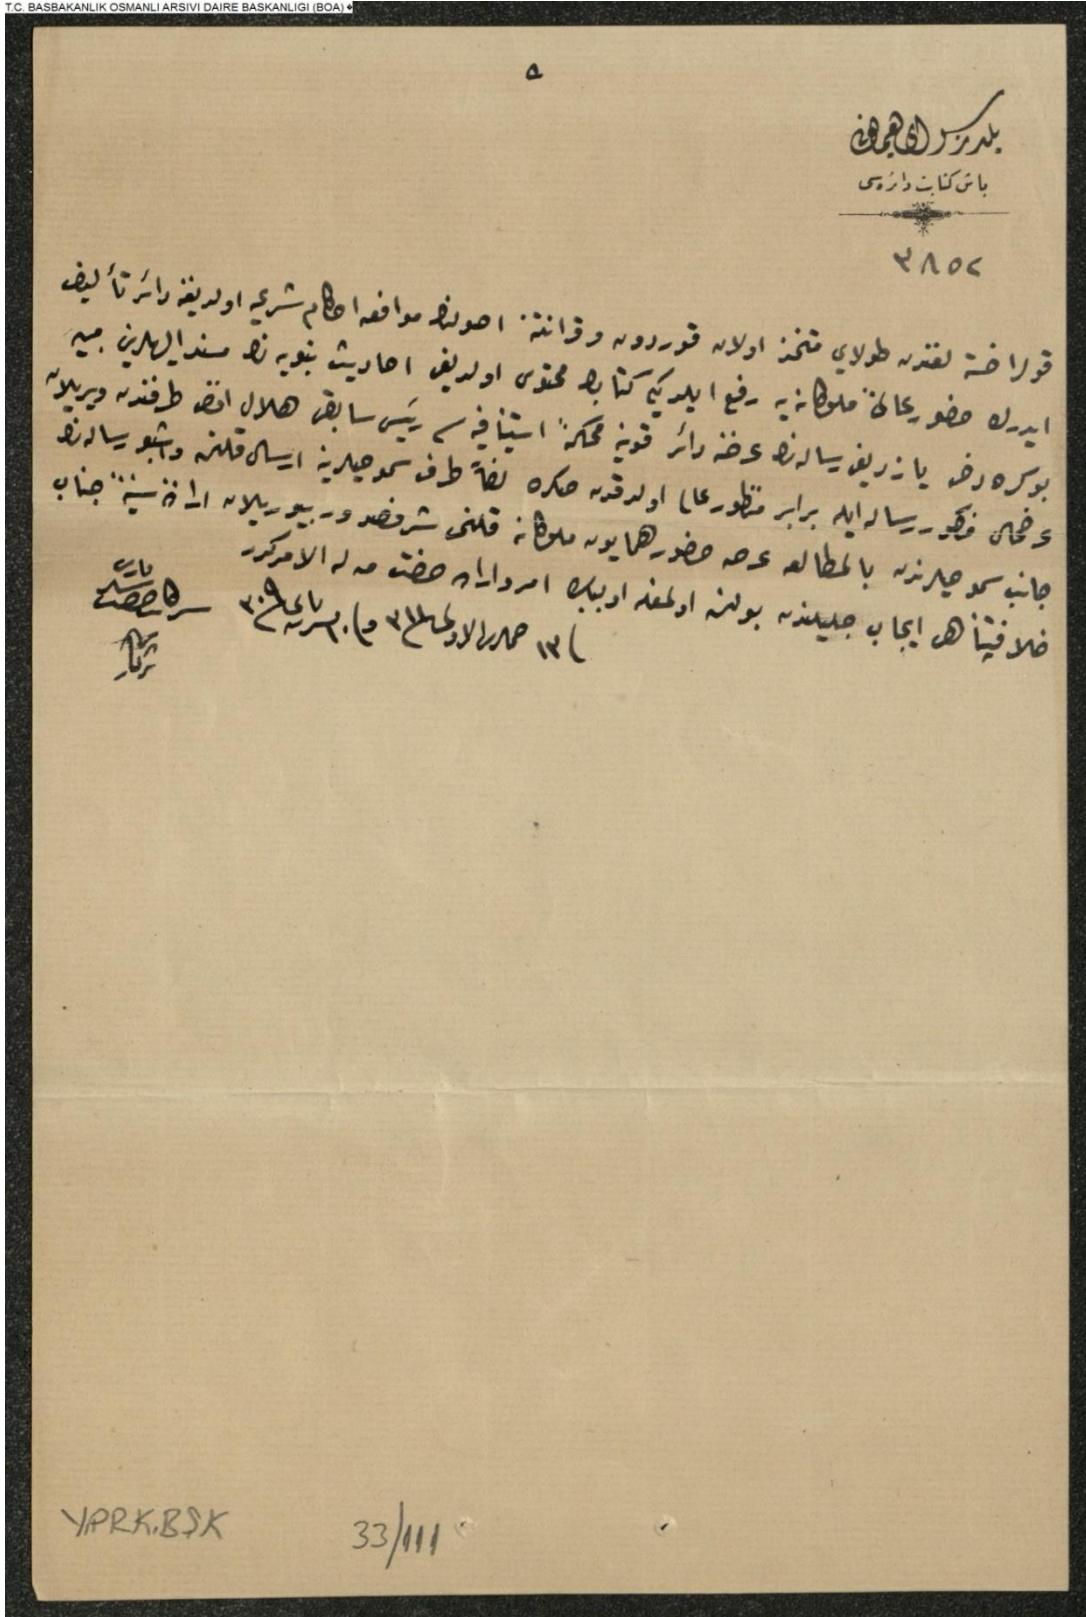 T.C. BASBAKANLIK OSMANLI ARSIVI DAIRE BASKANLIGI (BOA)
۵
يلديز سراى همايونى
باش كتابت دائره‌سى
٣٨٥٢
قولرا خسته‌لغندن طولايى متخذ اولان قوردون و قرانتنه اصولنك موافق احكام شرعيه اولديغنه دائر تأليف
ايدرك حضور عالئ ملوكانه‌يه رفع ايلديكى كتابك محتوى اولديغى احاديث نبويه‌نك مسند اليهلرينى مبين
بو كره دخى يازديغى رساله‌نك عرضنه دائر قونيه محكمهٔ استينافيه‌سى رئيس سابقى هلال افندى طرفندن ويريلان
عرضحال مذكور رساله ايله برابر منظور عالى اولدقدن صكره لفاً طرف سمو حيلرينه ارسال قلنمش و اشبو رساله‌نك
جانب سمو حيلرندن بالمطالعه عرض حضور همايون ملوكانه قلنمسى شرفصدور بيوريلان ارادهٔ سنيهٔ جناب
خلافتپناهى ايجاب جليلندن بولنمش اولمغله اولبابده امر و فرمان حضرت من له الامركدر
فى ١٣ جمادى الاولى سنه ٣١٢ و فى ٣٠ تشرين اول سنه ٣١٠
سركاتب حضرت شهريارى
ثريا
Y.PRK.BŞK
33/111